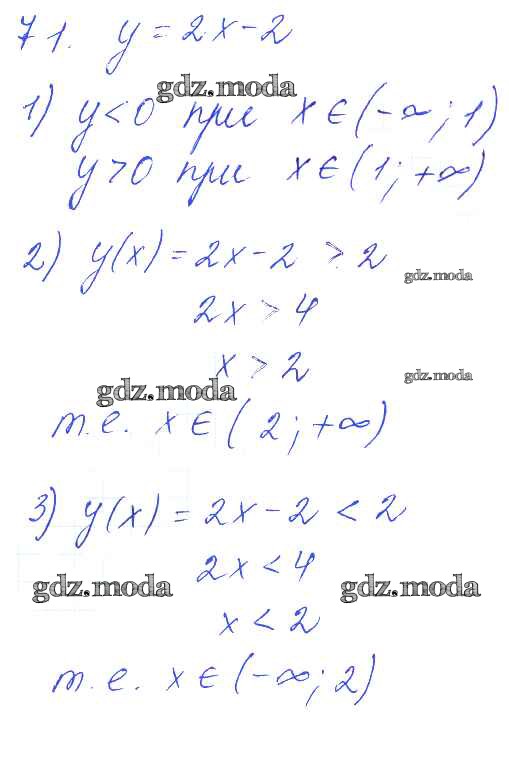 71. y = 2x - 2
gdz.moda
1) y < 0 при x ∈ (-∞; 1)
y > 0 при x ∈ (1; +∞)
2) y(x) = 2x - 2 > 2
gdz.moda
2x > 4
x > 2
gdz.moda
gdz.moda
т.е. x ∈ (2; +∞)
3) y(x) = 2x - 2 < 2
2x < 4
gdz.moda
gdz.moda
x < 2
т.е. x ∈ (-∞; 2)